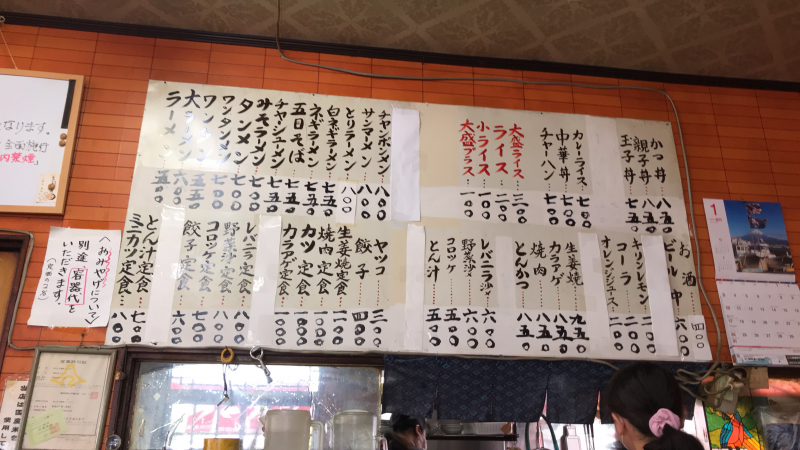 かつ丼…八五〇
親子丼…八五〇
玉子丼…七五〇
カレーライス…七〇〇
中華丼…八〇〇
チャーハン…七〇〇
大盛ライス…三〇〇
ライス…二〇〇
小ライス…一〇〇
大盛プラス…一〇〇
チャンポンメン…八〇〇
サンマーメン…八〇〇
とりラーメン…八〇〇
白ネギラーメン…七五〇
ネギラーメン…七五〇
五目そば…八五〇
チャシューメン…八五〇
みそラーメン…七五〇
タンメン…七〇〇
ワンタンメン…七〇〇
ワンタン…五五〇
大ラーメン…六五〇
ラーメン…五五〇
お酒…四〇〇
ビール中…六〇〇
キリンレモン…二〇〇
コーラ…二〇〇
オレンジジュース…二〇〇
生姜焼…九五〇
カラアゲ…八五〇
焼肉…八五〇
とんかつ…八五〇
レバニラ炒…六〇〇
野菜炒…六〇〇
コロッケ…五〇〇
とん汁…五五〇
ヤッコ…二五〇
餃子…四〇〇
生姜焼定食…一一〇〇
焼肉定食…一〇〇〇
カツ定食…一〇〇〇
カラアゲ定食…一〇〇〇
レバニラ定食…八〇〇
野菜炒定食…八〇〇
コロッケ定食…七〇〇
餃子定食…六〇〇
とん汁定食…八〇〇
ミニカツ定食…八〇〇
〈おみやげについて〉
別途容器代を
いただきます。
なります。
1